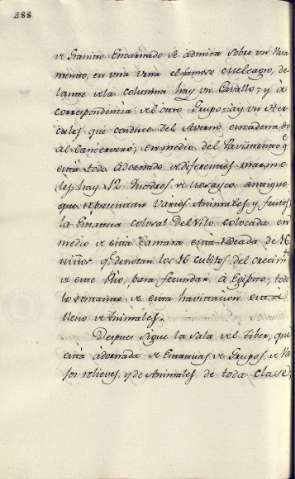 388
de Granito Encarnado se admira sobre un Pavi
mento, en una Urna el famoso Meleagro, de
lante de la columna hay un Cavallo; y a
correspondencia del otro Grupo, hay un Her
cules que conduce del Averno encadenado
al Cancervero; en medio del Pavimento q.e
está todo adornado de diferentes marmo
les hay 12 Quadros de Mosayco antiguo
que representan varios Animales, y juntos
la Estatua colosal del Nilo colocada en
medio de esta Camara está rodeada de 16
niños q. denotan los 16 cubitos del Crecim.to
de este Rio, para fecundar a Egipto; todo
lo restante de esta havitacion está
lleno de Animales.
Despues sigue la Sala del Tiber, que
está adornada de Estatuas, de Grupos, de Va
sos relieves, y de Animales de toda clase;